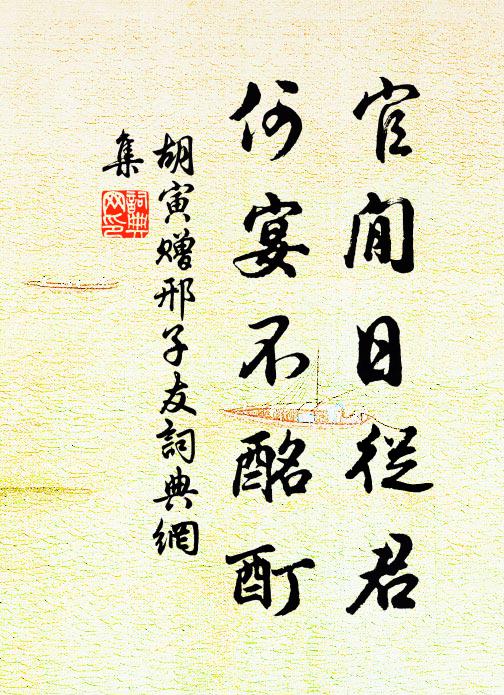 官閒日從君
何宴不酩酊
胡寅贈邢子友詞典網
集
詞典
网印